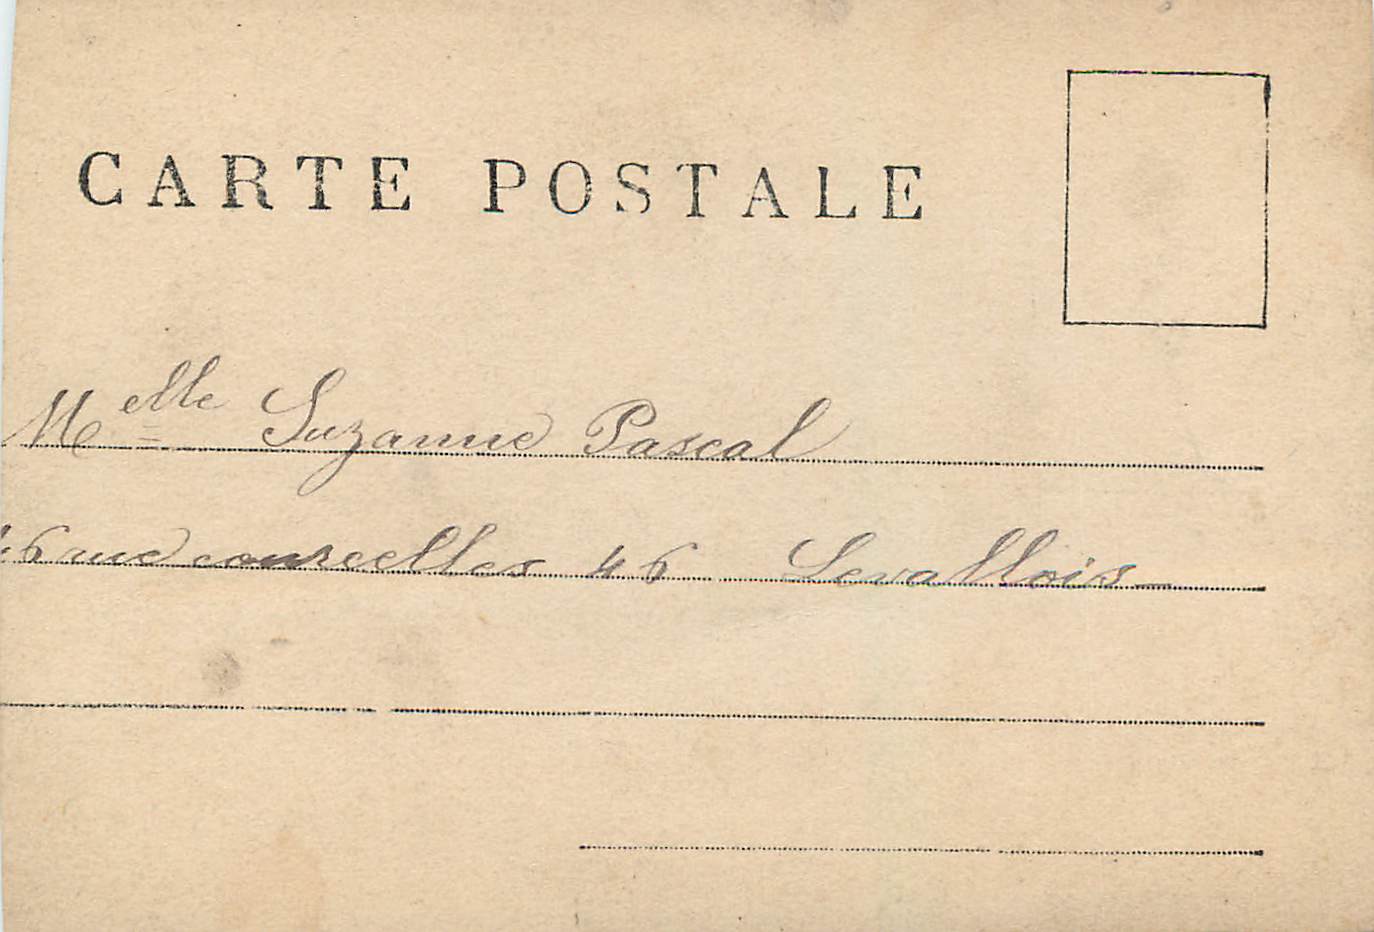 CARTE POSTALE
Melle Suzanne Pascal
46 rue courcelles 46 Levallois